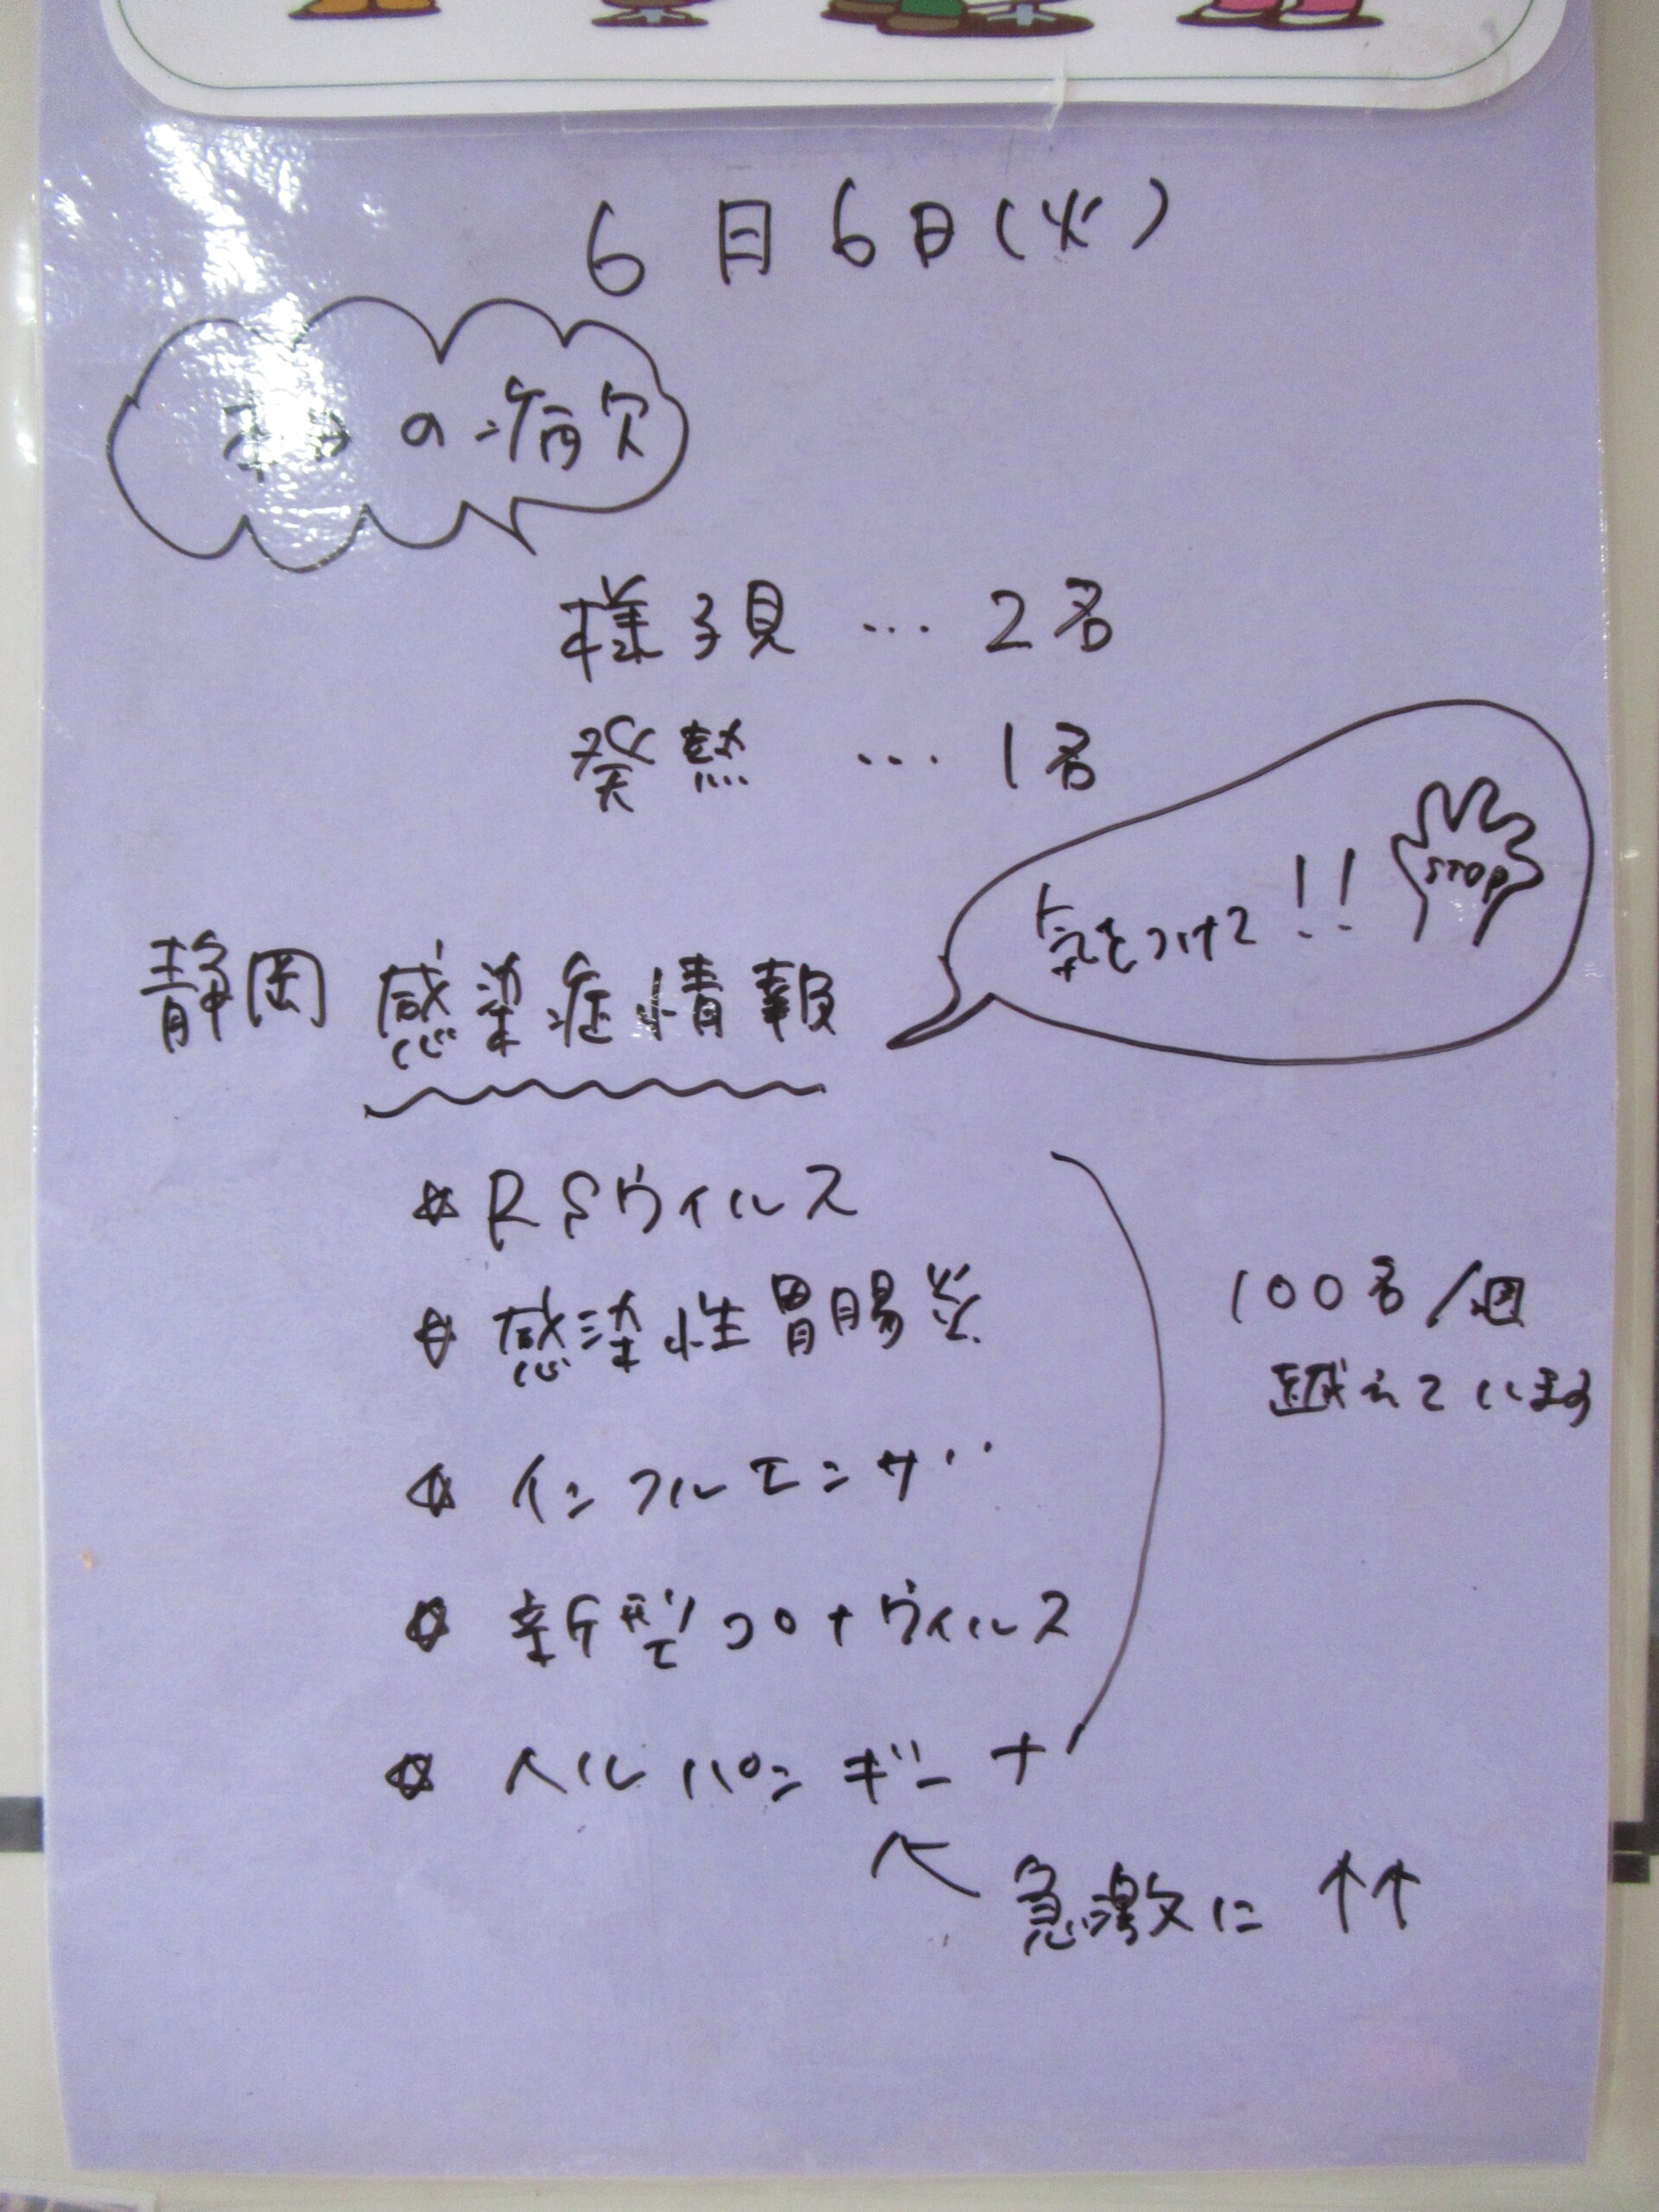 6月6日(火)
本日の病欠
様子見 … 2名
発熱 … 1名
気をつけて!! STOP
静岡 感染症情報
☆RSウィルス
☆感染性胃腸炎
☆インフルエンザ
☆新型コロナウィルス
☆ヘルパンギーナ
100名/週
越えています
急激に ↑↑